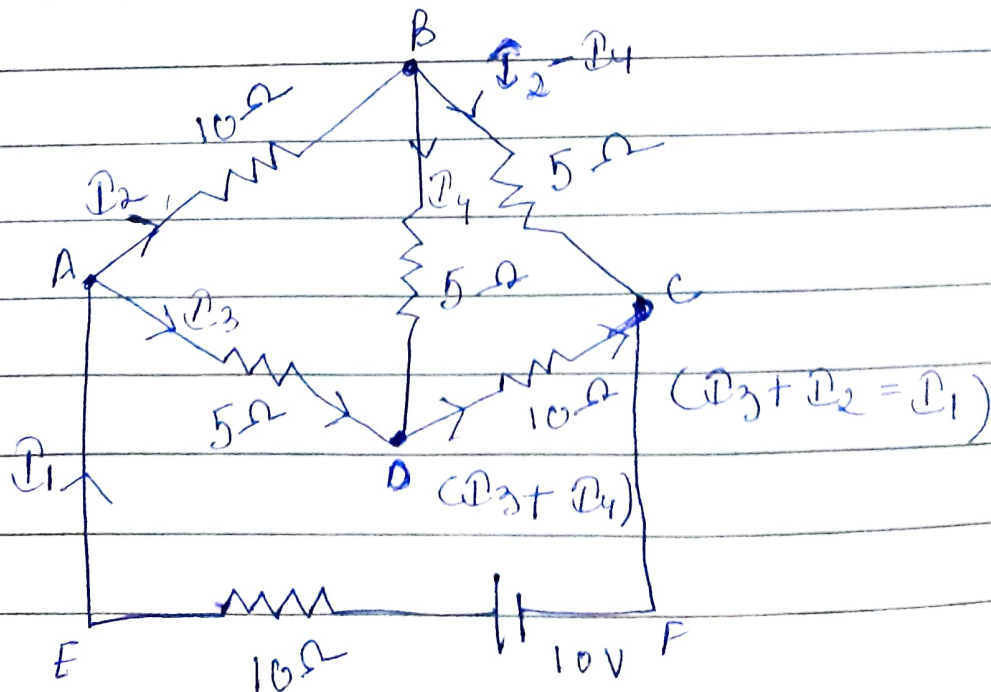 B
I2 - I4
10Ω
5Ω
I2
I4
A
5Ω
C
I3
5Ω
10Ω
(I3 + I2 = I1)
I1
D
(I3 + I4)
E
10Ω
10V
F